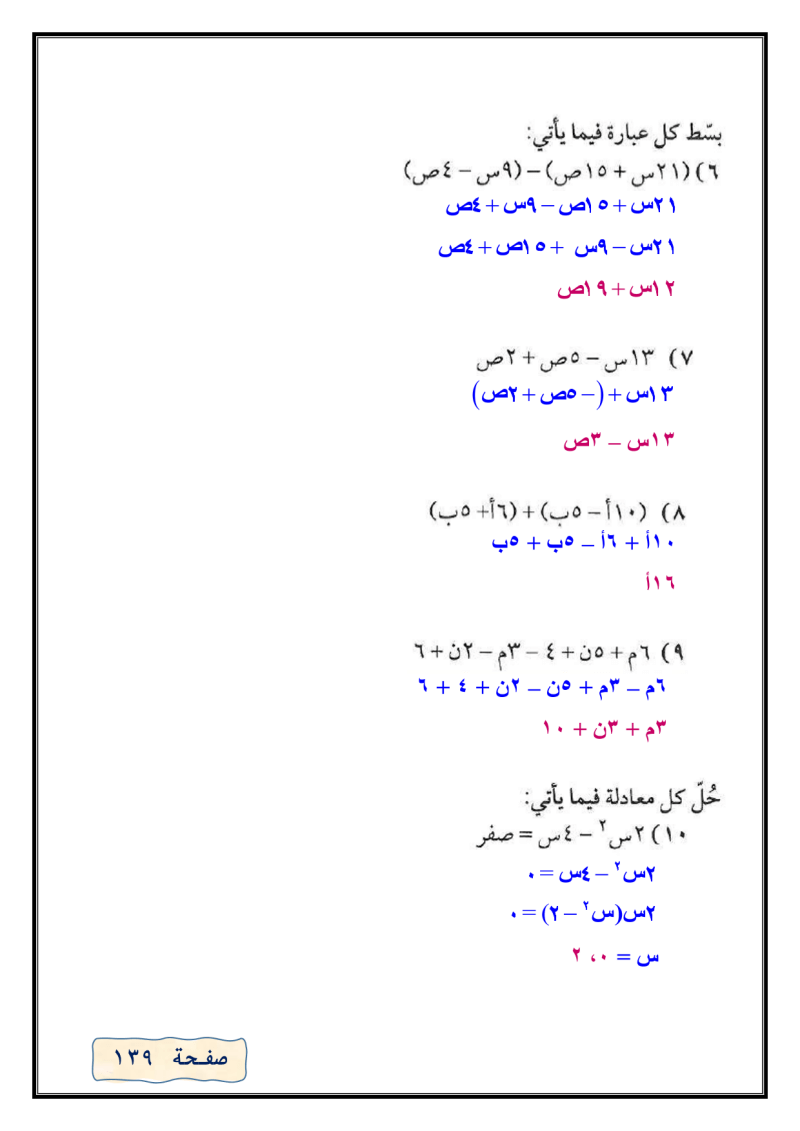 بسّط كل عبارة فيما يأتي:
٦) (٢١س + ١٥ص) – (٩س – ٤ص)
٢١س + ١٥ص – ٩س + ٤ص
٢١س – ٩س + ١٥ص + ٤ص
١٢س + ١٩ص
٧) ١٣س – ٥ص + ٢ص
١٣س + (– ٥ص + ٢ص)
١٣س – ٣ص
٨) (١٠أ – ٥ب) + (٦أ + ٥ب)
١٠أ + ٦أ – ٥ب + ٥ب
١٦أ
٩) ٦م + ٥ن + ٤ – ٣م – ٢ن + ٦
٦م – ٣م + ٥ن – ٢ن + ٤ + ٦
٣م + ٣ن + ١٠
حُلّ كل معادلة فيما يأتي:
١٠) ٢س² – ٤س = صفر
٢س² – ٤س = ٠
٢س(س² – ٢) = ٠
س = ٠، ٢
صفحة ١٣٩